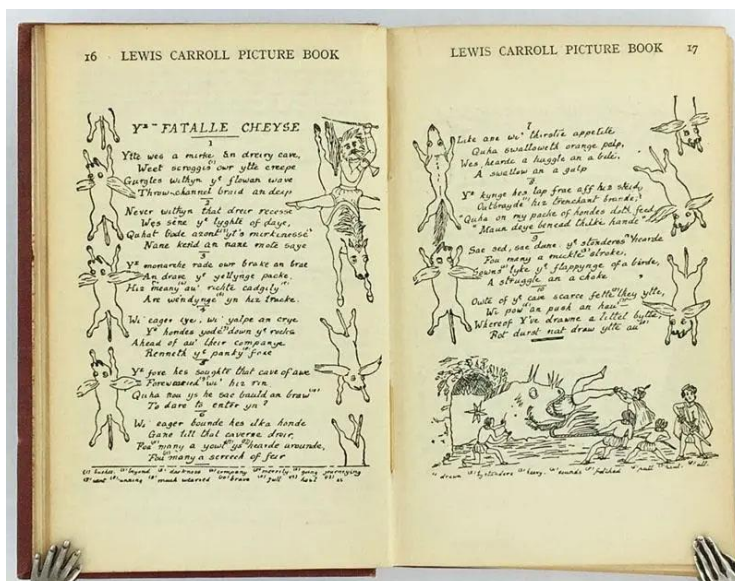 16 LEWIS CARROLL PICTURE BOOK
Yᵉ FATALLE CHEYSE
1
Ytte wes a mirke an dreiry cave,
Weet scroggis owr ytte creepe
Gurgles withyn yᵉ flowan wave
Throw channel braid an deep
2
Never withyn that dreir recesse
Wes sene yᵉ lyghte of daye,
Quhat bode azont yt's mirkinesse
Nane kend an nane mote saye
3
Yᵉ monarche rade owr brake an brae
An drave yᵉ yellynge packe,
Hiz meany au' richte cadgily
Are wendynge yn hiz tracke.
4
Wi' eager eye, wi' yalpe an crye
Yᵉ hondes yode down yᵉ rocks
Ahead of au' their companye
Renneth yᵉ panky foxe
5
Yᵉ foxe hes soughte that cave of awe
Forewearied wi' hiz rin
Quha nou ys he sae bauld an braw
To dare to enter yn?
6
Wi' eager bounde hes ilka honde
Gane till that caverne dreir,
Fou many a yowl ys hearde arounde,
Fou many a screech of feir
beyond darkness company merrily going journeying
went cunning much wearied brave full howl
LEWIS CARROLL PICTURE BOOK 17
7
Like ane wi' thirstie appetite
Quha swalloweth orange pulp,
Wes hearde a huggle an a bite,
A swallow an a gulp
8
Yᵉ kynge hes lap frae off hiz steid,
Outbrayde hiz trenchant brande;
"Quha on my packe of hondes doth feed,
Maun deye benead thilke hande"
9
Sae sed, sae dune: yᵉ stonderes hearde
Fou many a mickle stroke,
Sowns lyke yᵉ flappynge of a birde,
A struggle an a choke
10
Owte of yᵉ cave scarce fette they ytte,
Wi pow an push an hau'
Whereof Y've drawne a littel bytte,
Bot durst nat draw ytte au'
drawn bystanders heavy sounds fetched pull haul all